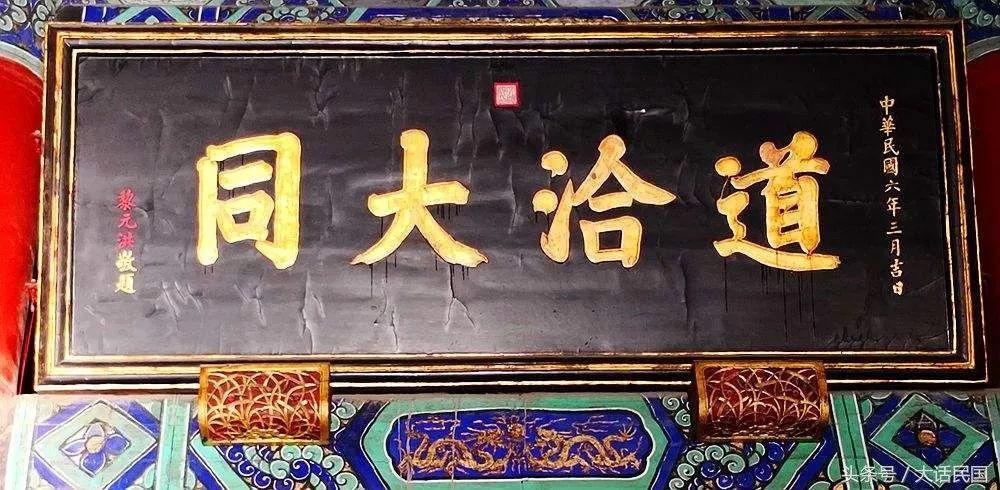 中華民國六年三月吉日
道洽大同
黎元洪敬題
头条号 / 大话民国